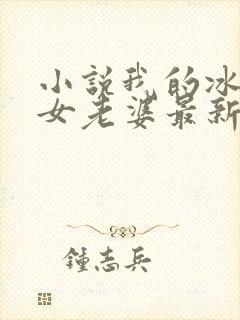 小説我的冰
女老婆最新
鍾志兵